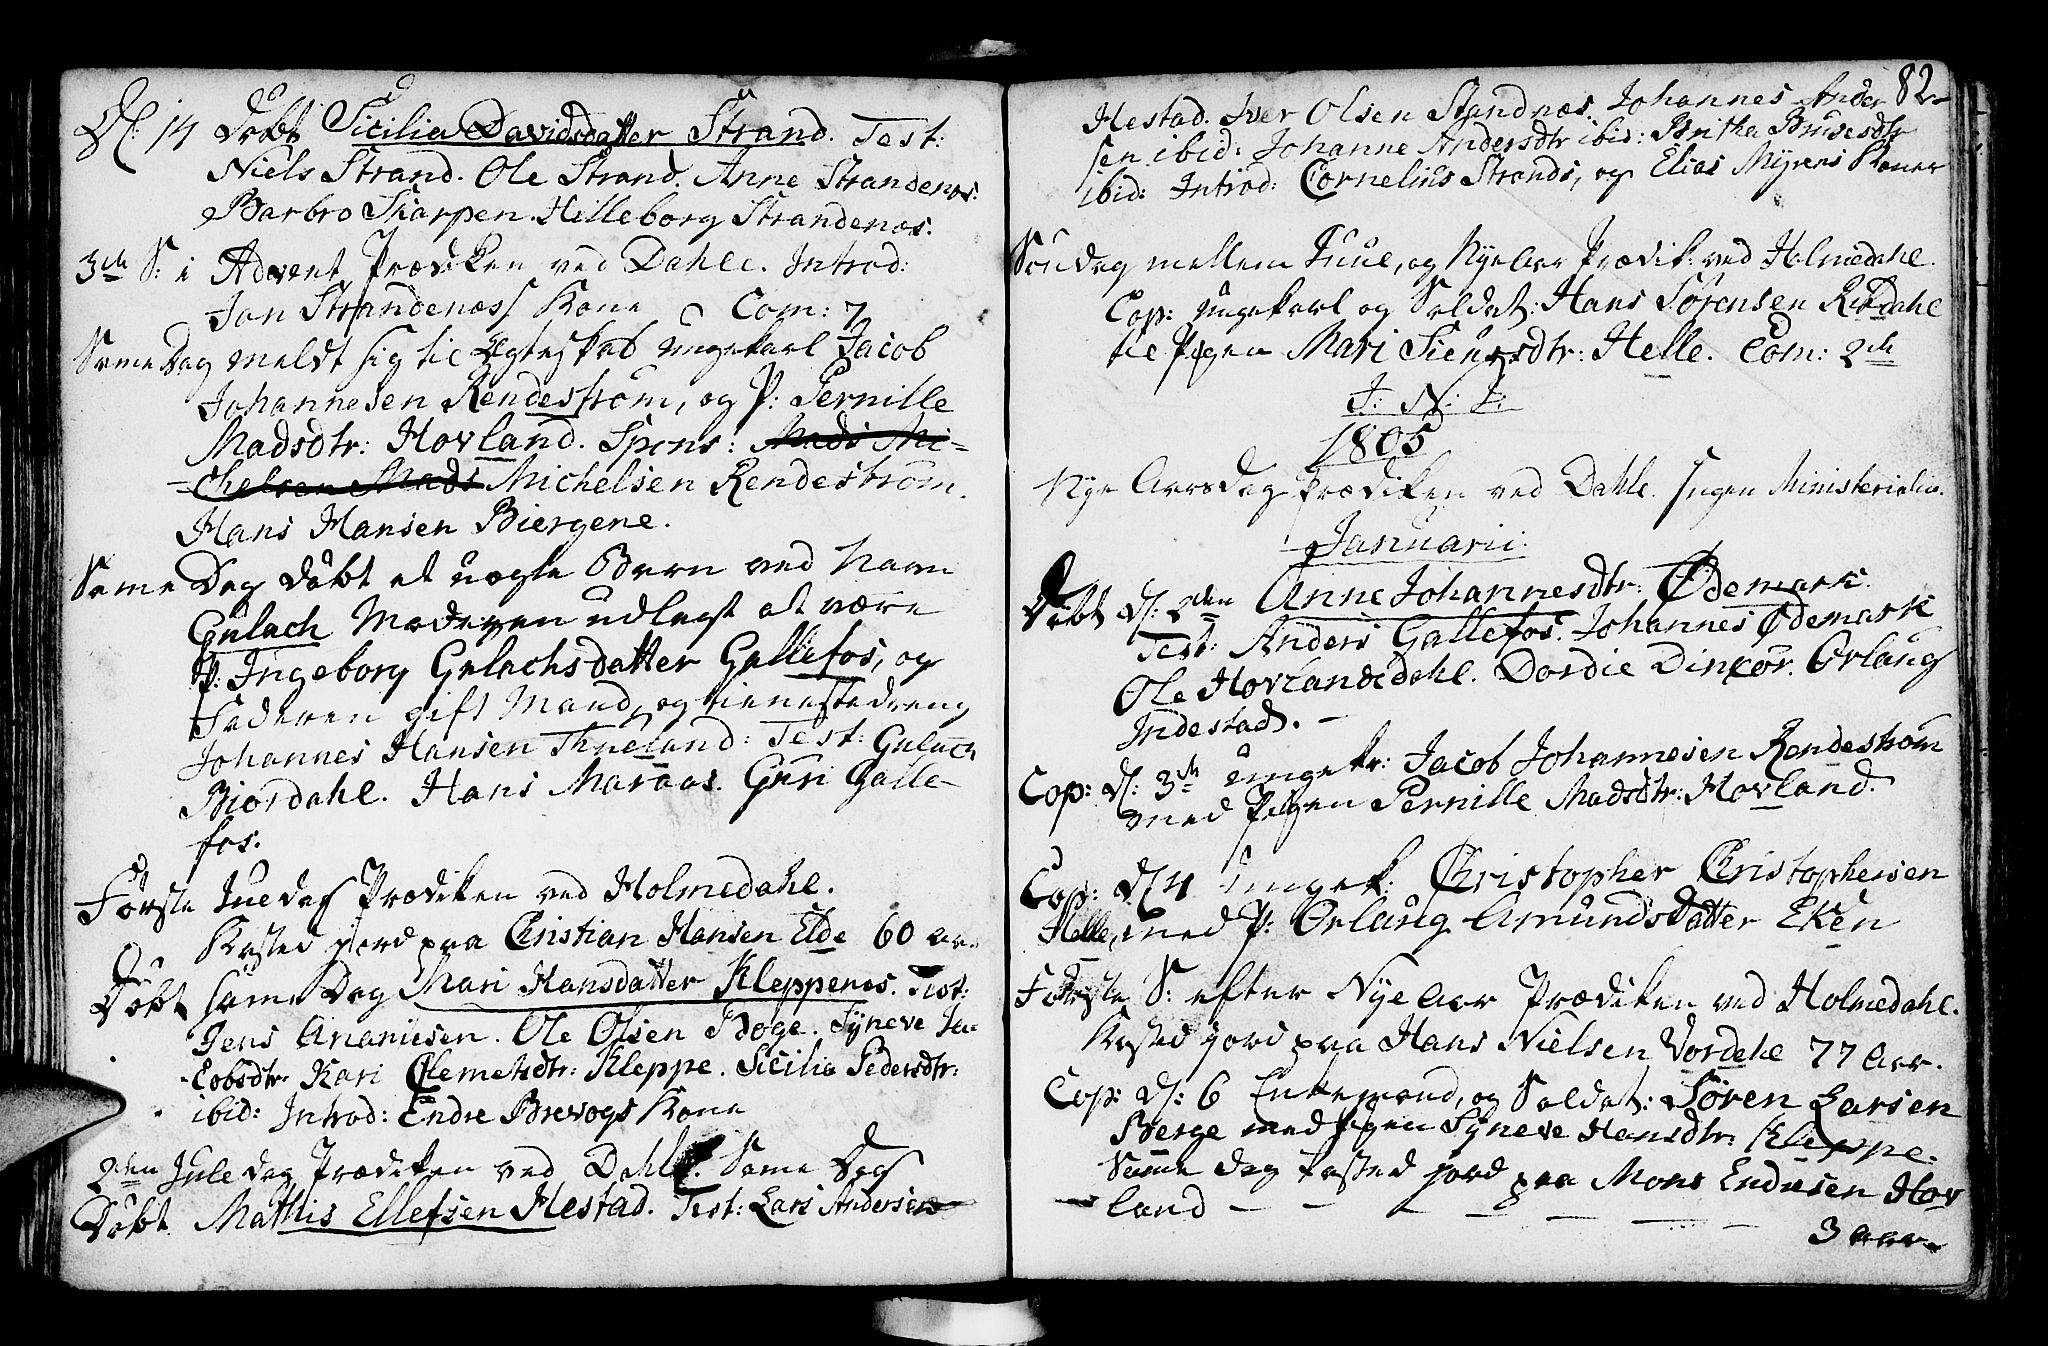 D: 14 Døbt Sicilia Davidsdatter Strand. Test:
Niels Strand. Ole Strand. Anne Strandenæs.
Barbro Skarpen. Hilleborg Strandenæs.
3die S: i Advent Prædiken ved Dahle. Introd:
Jan Strandenæss Kone Com: 7
Same Dag meldt sig til Ægteskab ungekarl Jacob
Johannesen Rendestrøm, og P: Pernille
Madsdtr: Hovland. Spons: Mads Mi-
-chelsen Mads Michelsen Rendestrøm.
Hans Hansen Biergene.
Same Dag døbt et uægte Barn ved Navn
Gulach Moderen udlagt at være
P: Ingeborg Gulachsdatter Gallefos, og
Faderen gift Mand, og tienestedreng
Johannes Hansen Thueland: Test: Gulach
Biordahl. Hans Maraas. Guri Galle-
fos.
Første Juledag Prædiken ved Holmedahl.
Kasted jord paa Christian Hansen Elde 60 aar
Døbt same Dag Mari Hansdatter Kleppenes. Test:
Jens Ananiesen. Ole Olsen Bøge. Syneve Ja-
-cobsdtr. Kari Clemetsdtr: Kleppe. Sicilia Pedersdtr:
ibid: Introd: Endre Brevogs Kone
2den Juledag Prædiken ved Dahle. Same Dag
Døbt Mathis Ellefsen Hestad. Test: Lars Andersen
82
Hestad. Iver Olsen Standnæs. Johannes Ander
sen ibid: Johanne Andersdtr ibid: Britha
ibid: Introd: Cornelius Strands, og Elias Myrens Koner
Søndag mellem Juul, og Nyeaar Prædik: ved Holmedahl.
Cop: ungekarl og Soldat: Hans Sørensen Rødahl
til Pigen Mari Siursdtr: Helle. Com: 2de
J: N: J:
1805
Nye Aarsdag Prædiken ved Dahle. Ingen Ministerialia.
Januarii:
Døbt D: 2den Anne Johannesdtr: Ødemark.
Test: Anders Gallefos. Johannes Ødemark
Ole Hovlandsdahl. Dordie Dincør.Ørlaug
Indestad. -
Cop: D: 3die ungekr: Jacob Johannesen Rendestrøm
med Pigen Pernille Madsdtr: Hovland.
Cop: D: 4 ungek: Christopher Christophersen
Helle, med P: Ørlaug Amundsdatter Eken
Første S: efter Nye Aar Prædiken ved Holmedahl.
Kasted jord paa Hans Nielsen Vordahl 77 Aar.
Cop: D: 6 Enkemand, og Soldat: Søren Larsen
Berge med Pigen Syneve Hansdtr: Kleppe.
Same dag kasted jord paa Mons Endresen Hov
land - - - - - - -
3 aar.